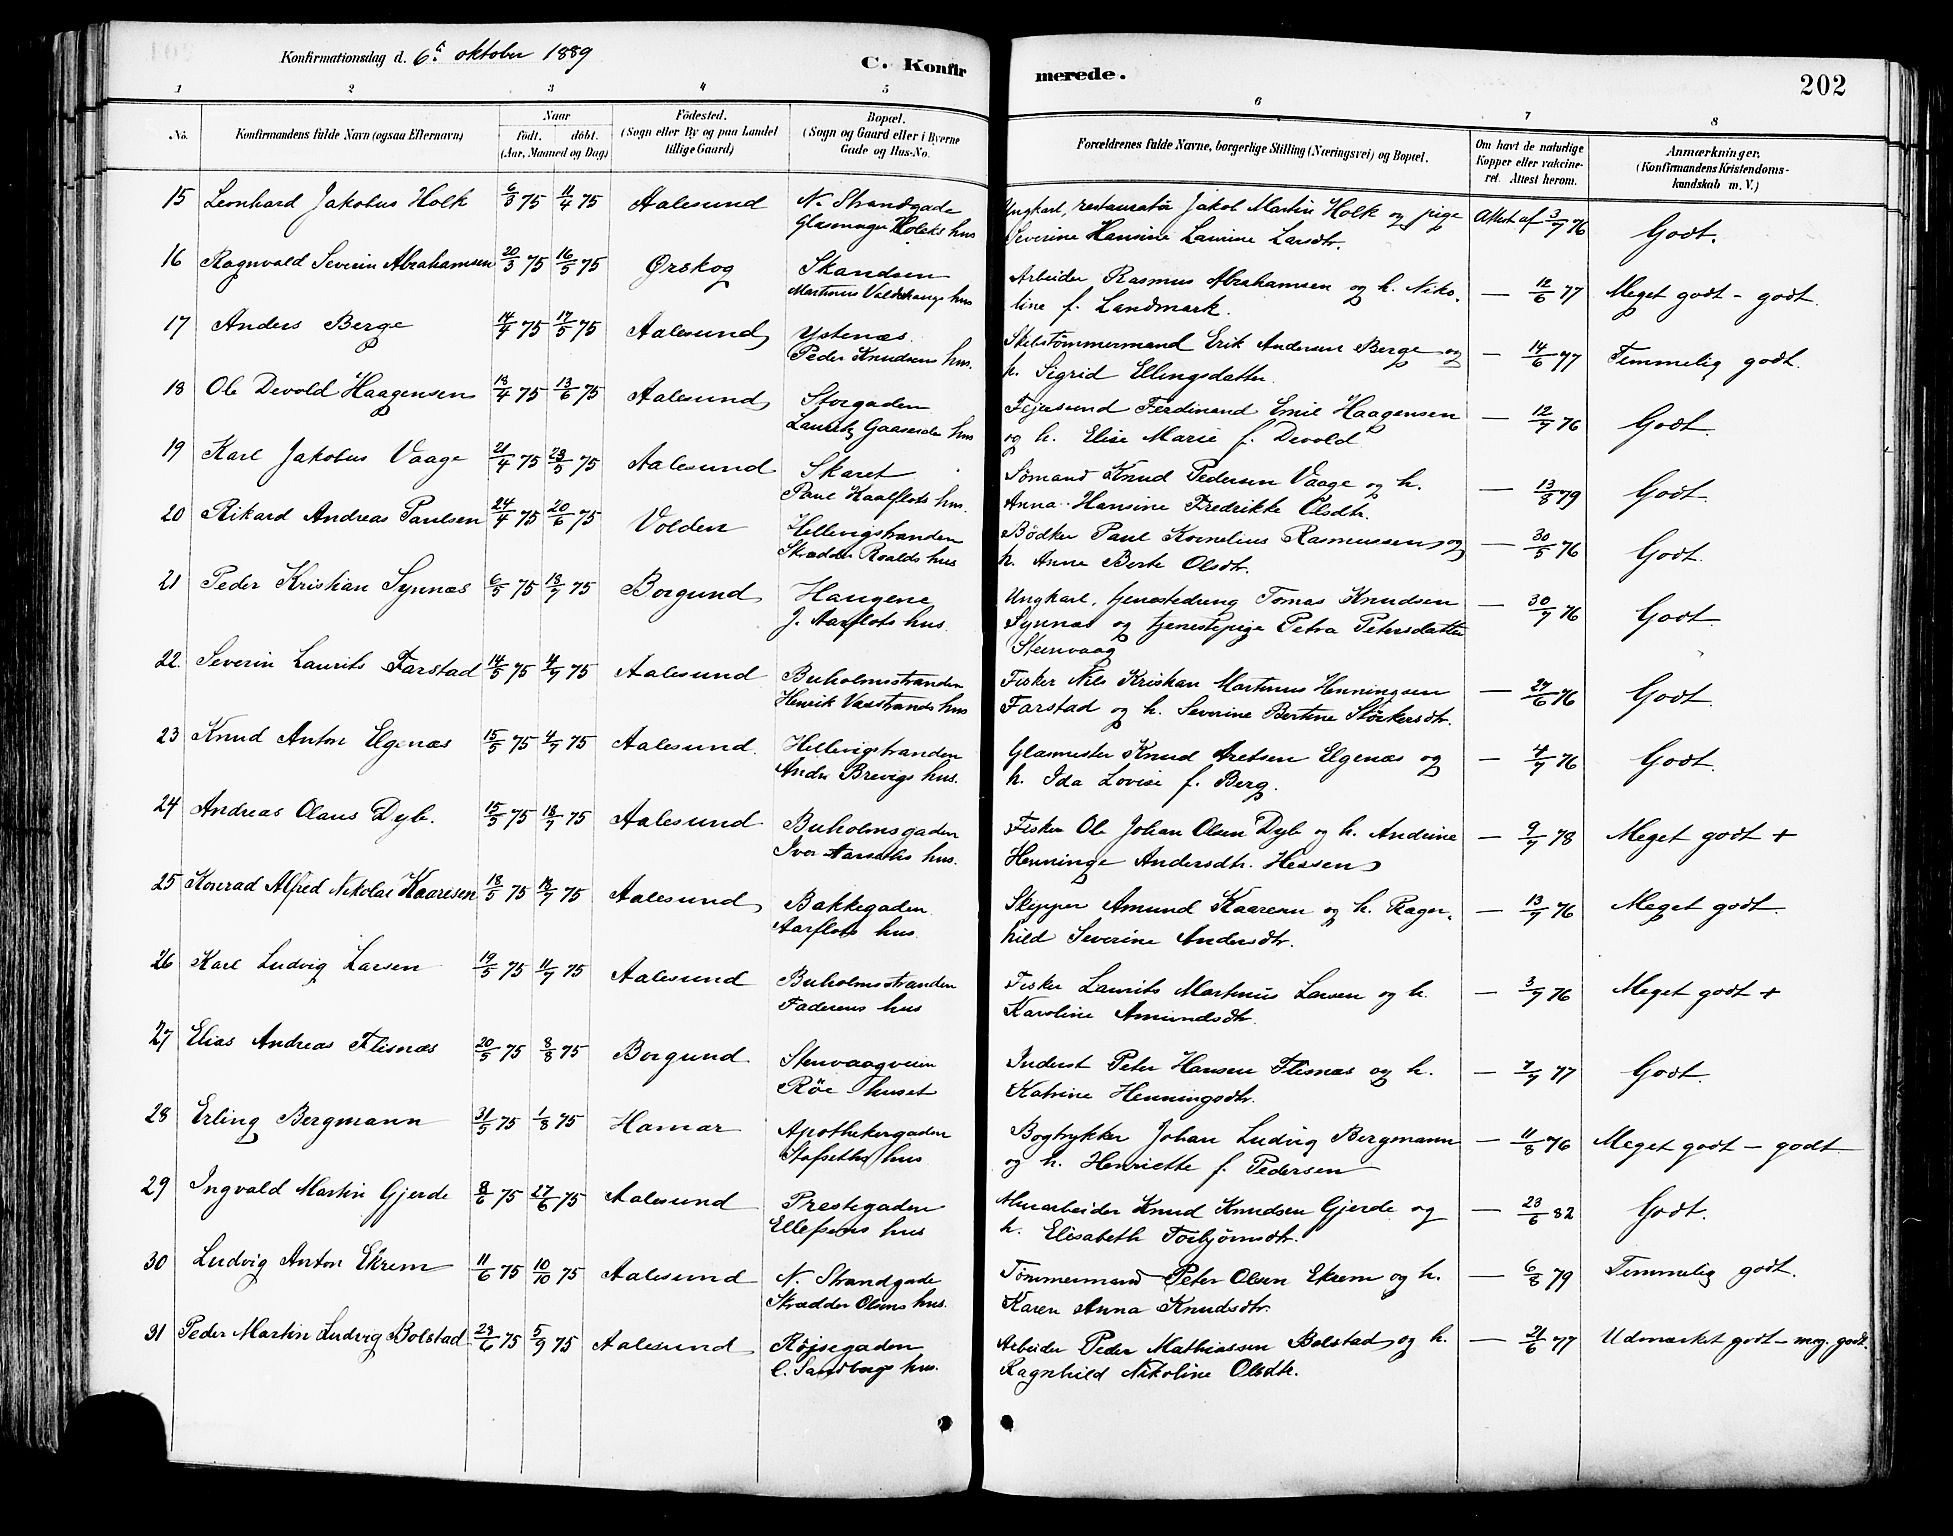 Konfirmationsdag d. 6te oktober 1889
C. Konfirmerede.
202
1 2 3 4 5 6 7 8
No.
Konfirmandens fulde Navn (ogsaa Efternavn)
Naar
födt. döbt.
(Aar, Maaned og Dag)
Födested.
(Sogn eller By og paa Landet
tillige Gaard)
Bopæl.
(Sogn og Gaard eller i Byerne
Gade og Hus-No.
Forældrenes fulde Navne, borgerlige Stilling (Næringsvei) og Bopæl.
Om havt de naturlige
Kopper eller vakcine-
ret. Attest herom.
Anmærkninger.
(Konfirmandens Kristendoms-
kundskab m. V.)
15 Leonhard Jakobus Holk 6/3 75 11/4 75 Aalesund N. Strandgade Ungkarl, restauratør Jakob Martin Holk og pige Attest af 3/7 76 Godt.
Glasmager Holcks hus Severine Hansine Laurine Larsdtr.
16 Ragnvald Severin Abrahamsen 20/3 75 16/5 75 Ørskog Skandsen Arbeider Rasmus Abrahamsen og h. Niko- — 12/6 77 Meget godt - godt.
Martinus Valdehaugs hus line f. Landmark.
17 Anders Berge 14/4 75 17/5 75 Aalesund Ystenæs. Skibstømmermand Erik Andersen Berge og — 14/6 77 Temmelig godt.
Peder Knudsens hus. h. Sigrid Ellingsdatter.
18 Ole Devold Haagensen 18/4 75 13/6 75 Aalesund Storgaden Fejersund Ferdinand Emil Haagensen — 12/7 76 Godt.
Lauritz hus og h. Elise Marie f. Devold
19 Karl Jakobus Vaage 21/4 75 23/5 75 Aalesund Skaret Sømand Knud Pedersen Vaage og h. — 13/8 79 Godt.
Paul Kaalflots hus. Anna Hansine Fredrikke Olsdtr.
20 Rikard Andreas Paulsen 24/4 75 20/6 75 Volden Hellevigstranden Bødker Paul Kornelius Rasmussen og — 30/5 76 Godt.
Skrædder Roalds hus h. Anne Berte Olsdtr.
21 Peder Kristian Synnæs 6/5 75 18/7 75 Borgund Haugene Ungkarl, tjenestedreng Tomas Knudsen — 30/7 76 Godt.
J. Aarflots hus. Synnæs og tjenestepige Petra Petersdatter
Steinvaag
22 Severin Laurits Farstad 14/5 75 4/7 75 Aalesund Buholmsstranden Fisker Nils Kristian Martinus Henningsen — 27/6 76 Godt.
Henrik Vasstrands hus Farstad og h. Severine Bertine Störkersdtr.
23 Knud Anton Elgenæs 15/5 75 4/7 75 Aalesund. Hellevigstranden Glasmester Knud Aretsen Elgenæs og — 4/7 76 Godt.
Andr. Brevigs hus. h. Ida Lovise f. Berg.
24 Andreas Olaus Dyb. 15/5 75 18/7 75 Aalesund Buholmsgaden Fisker Ole Johan Olsen Dyb og h. Andrine — 9/7 78 Meget godt +
Iver Aarseths hus. Henninge Andersdtr. Hessen
25 Konrad Alfred Nikolai Kaaresen 18/5 75 18/7 75 Aalesund Bakkegaden Skipper Amund Kaaresen og h. Ragn- — 13/7 76 Meget godt.
Aarflots hus. hild Severine Andersdtr.
26 Karl Ludvig Larsen 19/5 75 11/7 75 Aalesund Buholmsstranden Fisker Laurits Martinus Larsen og h. — 3/7 76 Meget godt +
Faderens hus Karoline Amundsdtr.
27 Elias Andreas Flisnæs 20/5 75 8/8 75 Borgund Stenvaagveien Inderst Peter Hansen Flisnæs og h. — 7/7 77 Godt.
Röe huset Katrine Henningsdtr.
28 Erling Bergmann 31/5 75 1/8 75 Hamar Apothekergaden Bogtrykker Johan Ludvig Bergmann — 11/8 76 Meget godt - godt
Stafseths hus og h. Henriette f. Pedersen
29 Ingvald Martin Gjerde 8/6 75 27/6 75 Aalesund Prestegaden Murarbeider Knud Knudsen Gjerde og — 23/6 82 Godt.
Ellefsens hus h. Elisabeth Torbjørnsdtr.
30 Ludvig Anton Ekrem 11/6 75 10/10 75 Aalesund N. Strandgade Tömmermand Peter Olsen Ekrem og h. — 6/8 79 Temmelig godt.
Skrædder Olsens hus. Karen Anna Knudsdtr.
31 Peder Martin Ludvig Bolstad 23/6 75 5/9 75 Aalesund Röjsegaden Arbeider Peder Mathiassen Bolstad og h. — 21/6 77 Udmærket godt - meg. godt.
C. Sandborgs hus. Ragnhild Nikoline Olsdtr.